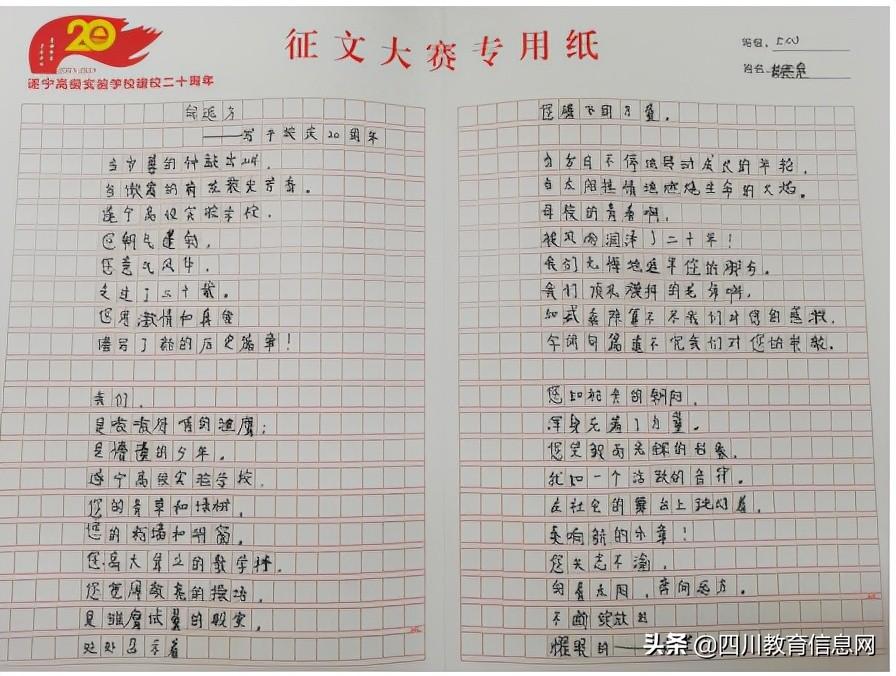 20
遂宁高级实验学校建校二十周年
征文大赛专用纸
班级:
姓名:
向远方
——写于校庆20周年
当岁月的钟敲出
当傲霜的荷花散发芳香。
遂宁高级实验学校,
您朝气蓬勃,
您意气风华,
走过了二十载。
您用激情和真
谱写了新的历史篇章!
我们,
是嗷嗷待哺的雏鹰;
是懵懂的少年。
遂宁高级实验学校,
您的青草和绿树,
您的粉墙和明窗。
您高大耸立的教学楼,
您宽阔敞亮的操场,
是雏鹰试翼的殿堂,
处处昭示着
您腾飞的力量。
当岁月不停地转动成长的年轮,
当太阳热情地燃烧生命的火焰。
母校的青春啊,
被风雨润泽了二十年!
我们无悔地追率您的脚步。
我们顶礼膜拜的老师啊,
加式乘除算不尽我们对您的感激,
字词句篇道不完我们对您的崇敬。
您如初秋的朝阳,
浑身充满了力量。
您坐观而无
犹如一个活跃的音符。
在社会的舞台上跳动着,
奏响新的乐章!
您矢志不渝,
向着太阳,奔向远方。
不断绽放出
耀眼的——
头条 @四川教育信息网